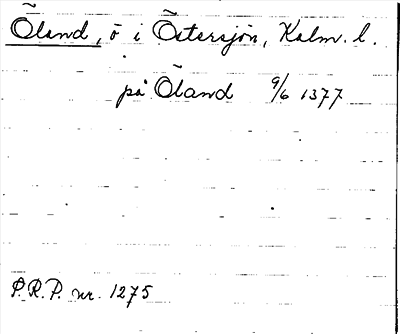 Öland, ö i Östersjön, Kalm. l.
på Öland 9/6 1377
P.R.P. nr. 1275